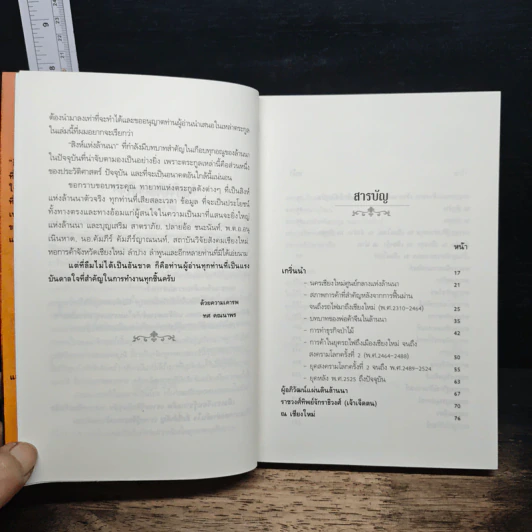 ต้องนำมาลงเท่าที่จะทำได้และขออนุญาตท่านผู้อ่านนำเสนอในเหล่าตระกูล
ในเล่มนี้ที่ผมอยากจะเรียกว่า
"สิงห์แห่งล้านนา" ที่กำลังมีบทบาทสำคัญในเกือบทุกอณูของล้านนา
ในปัจจุบันที่น่าจับตามองเป็นอย่างยิ่ง เพราะตระกูลเหล่านี้คือส่วนหนึ่ง
ของประวัติศาสตร์ ปัจจุบัน และที่จะเป็นอนาคตอันใกล้นี้แน่นอน
ขอกราบขอบพระคุณ ทายาทแห่งตระกูลดังต่างๆ ที่เป็นสิงห์
แห่งล้านนาตัวจริง ทุกท่านที่เสียสละเวลา ข้อมูล ที่จะเป็นประโยชน์
ทั้งทางตรงและทางอ้อมแก่ผู้สนใจในความเป็นมาที่แสนจะยิ่งใหญ่
แห่งล้านนา และบุญเสริม สาตราภัย, ปลายอ้อ ชนะนนท์, พ.ต.อ.อนุ
เนินหาด, นอ.คัมภีร์ คัมภีร์ญาณนนท์, สถาบันวิจัยสังคมเชียงใหม่
หอการค้าจังหวัดเชียงใหม่ ลำปาง ลำพูนและอีกหลายท่านที่มิได้เอ่ยนาม
แต่ที่ลืมไม่ได้เป็นอันขาด ก็คือท่านผู้อ่านทุกท่านที่เป็นแรง
บันดาลใจที่สำคัญในการทำงานทุกชิ้นครับ
ด้วยความเคารพ
ทศ คณนาพร
สารบัญ
หน้า
เกริ่นนำ 17
- นครเชียงใหม่ศูนย์กลางแห่งล้านนา 21
- สภาพการค้าที่สำคัญหลังจากการฟื้นม่าน
จนถึงรถไฟมาถึงเชียงใหม่ (พ.ศ.2310-2464) 25
- บทบาทของพ่อค้าจีนในล้านนา 35
- การทำธุรกิจป่าไม้ 42
- การค้าในยุครถไฟถึงเมืองเชียงใหม่ จนถึง
สงครามโลกครั้งที่ 2 (พ.ศ.2464-2488) 50
- ยุคสงครามโลกครั้งที่ 2 จนถึง พ.ศ.2489-2524 55
- ยุคหลัง พ.ศ.2525 ถึงปัจจุบัน 63
ผู้อภิวัฒน์แผ่นดินล้านนา 67
ราชวงศ์ทิพย์จักราธิวงศ์ (เจ้าเจ็ดตน) 70
ณ เชียงใหม่ 76
9
8